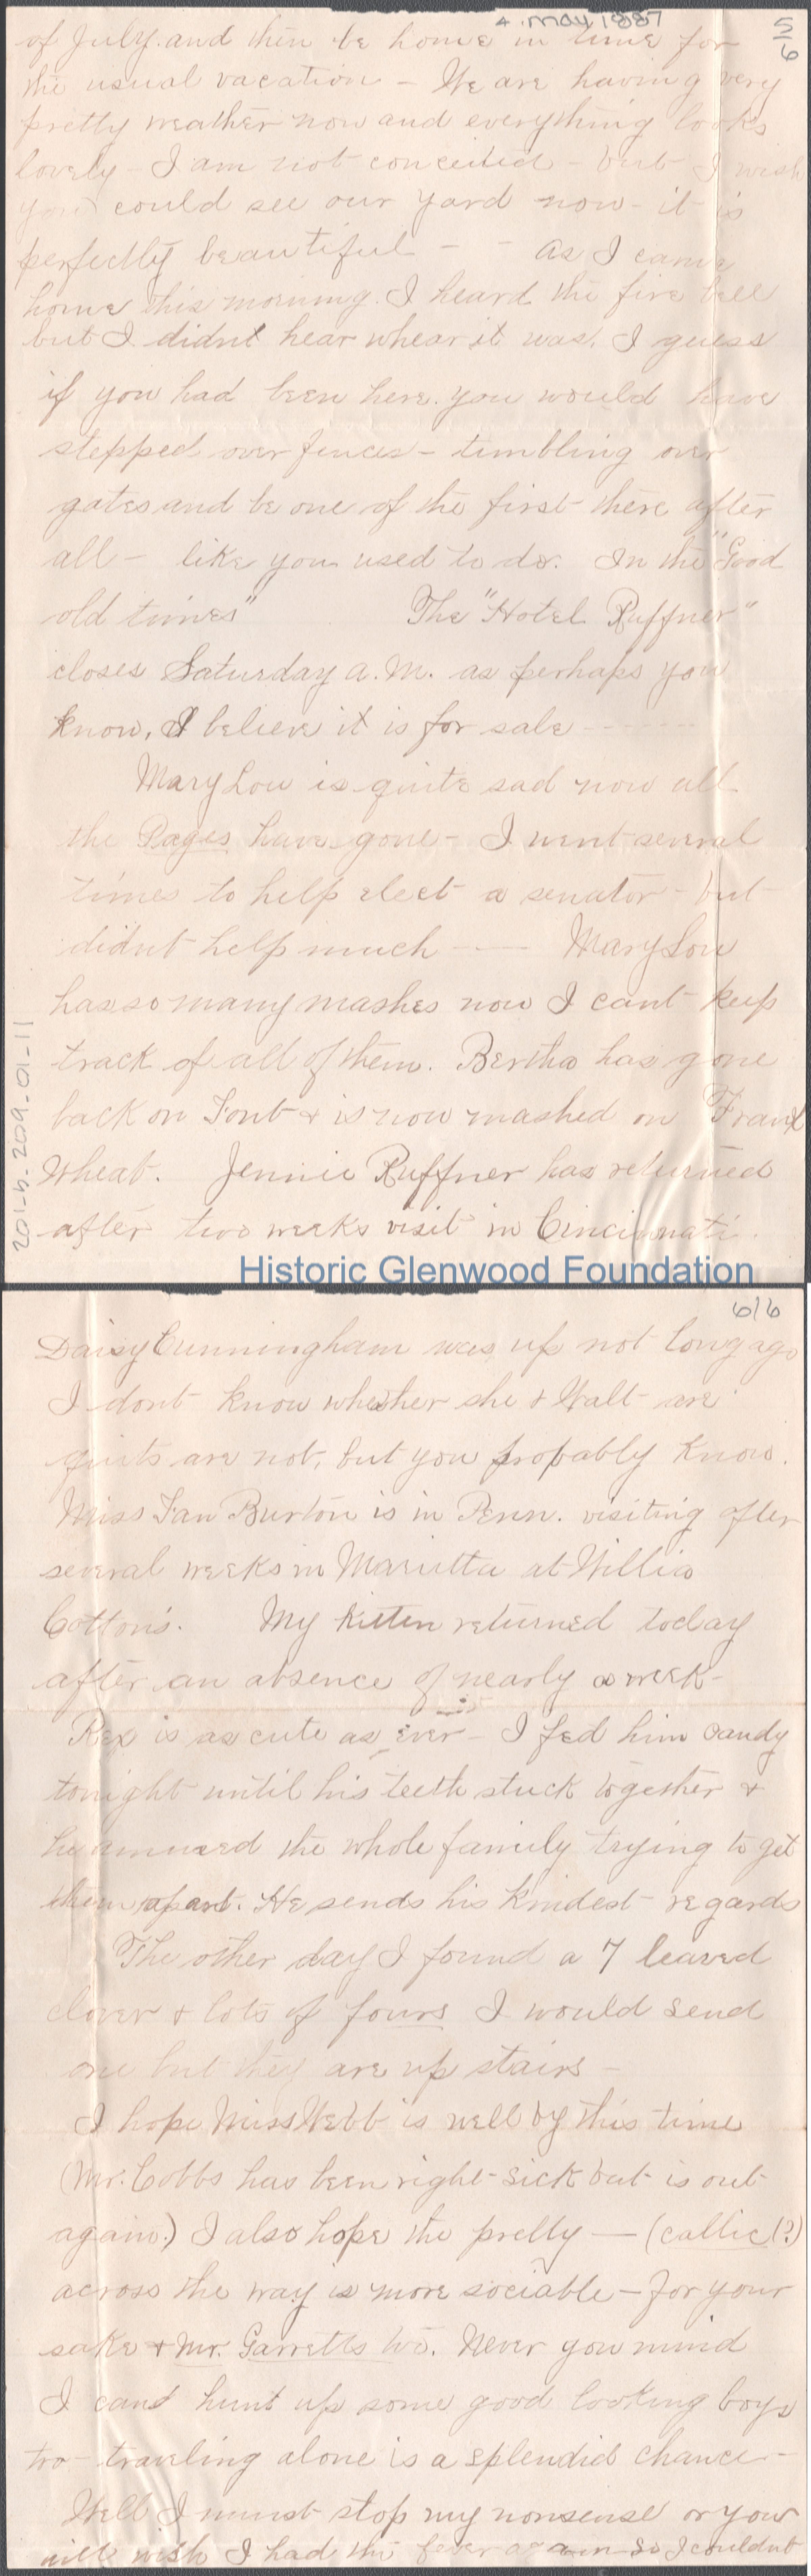 4 May 1887
5/6
of July and then be home in time for
the usual vacation - We are having very
pretty weather now and everything looks
lovely - I am not conceited - but I wish
you could see our yard now - it is
perfectly beautiful - - As I came
home this morning I heard the fire bell
but I didnt hear whear it was. I guess
if you had been here you would have
stepped over fences - tumbling over
gates and be one of the first there after
all - like you used to do. In the "Good
old times" The "Hotel Ruffner"
closes Saturday A.M. as perhaps you
know, I believe it is for sale - - - - -
Mary Lou is quite sad now all
the Pages have gone - I went several
times to help elect a senator - but
didnt help much - - Mary Lou
has so many mashes now I cant keep
track of all of them. Bertha has gone
back on Font & is now mashed on Frank
Wheat. Jennie Ruffner has returned
after two weeks visit in Cincinnati.
201-h.209-01-11
Historic Glenwood Foundation
6/6
Daisy Cunningham was up not long ago
I dont know whether she & Walt are
quits are not, but you probably know.
Miss Fan Burton is in Penn. visiting after
several weeks in Marietta at Willia
Cotton's. My kitten returned today
after an absence of nearly a week -
Rex is as cute as ever - I fed him candy
tonight until his teeth stuck together &
he amused the whole family trying to get
them apart. He sends his kindest regards
The other day I found a 7 leaved
clover & lots of fours I would send
one but they are up stairs -
I hope Miss Webb is well by this time
(Mr. Cobbs has been right sick but is out
again.) I also hope the pretty — (callie(?)
across the way is more sociable - for your
sake & Mr. Garretts too. Never you mind
I cant hunt up some good looking boys
too - traveling alone is a splendid chance -
Well I must stop my nonsense or you
will wish I had the fever again so I couldnt